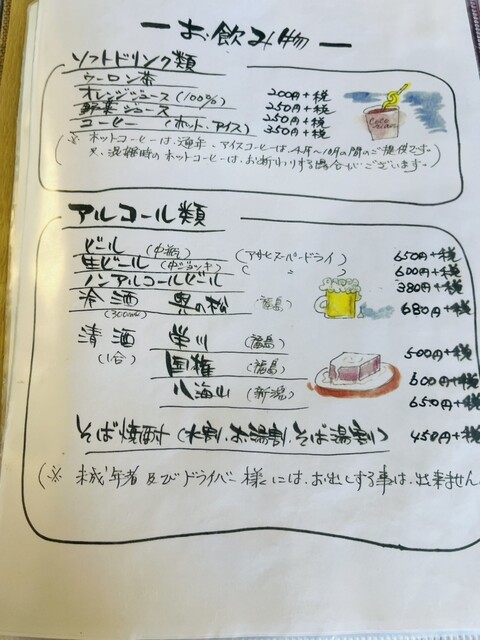 ーお飲み物ー
ソフトドリンク類
ウーロン茶 200円+税
オレンジジュース(100%) 250円+税
野菜ジュース 250円+税
コーヒー (ホット、アイス) 350円+税
(※ ホットコーヒーは、通年、アイスコーヒーは、4月〜10月の間のご提供です。
又、混雑時のホットコーヒーは、お断わりする場合がございます。)
アルコール類
ビール (中瓶) (アサヒスーパードライ) 650円+税
生ビール (中ジョッキ) ( 〃 ) 600円+税
ノンアルコールビール 380円+税
冷酒 奥の松 (福島) 680円+税
(300ml)
清酒 栄川 (福島) 500円+税
(1合) 国権 (福島) 600円+税
八海山 (新潟) 650円+税
そば焼酎 (水割、お湯割、そば湯割) 450円+税
(※ 未成年者及びドライバー様には、お出しする事は、出来ません